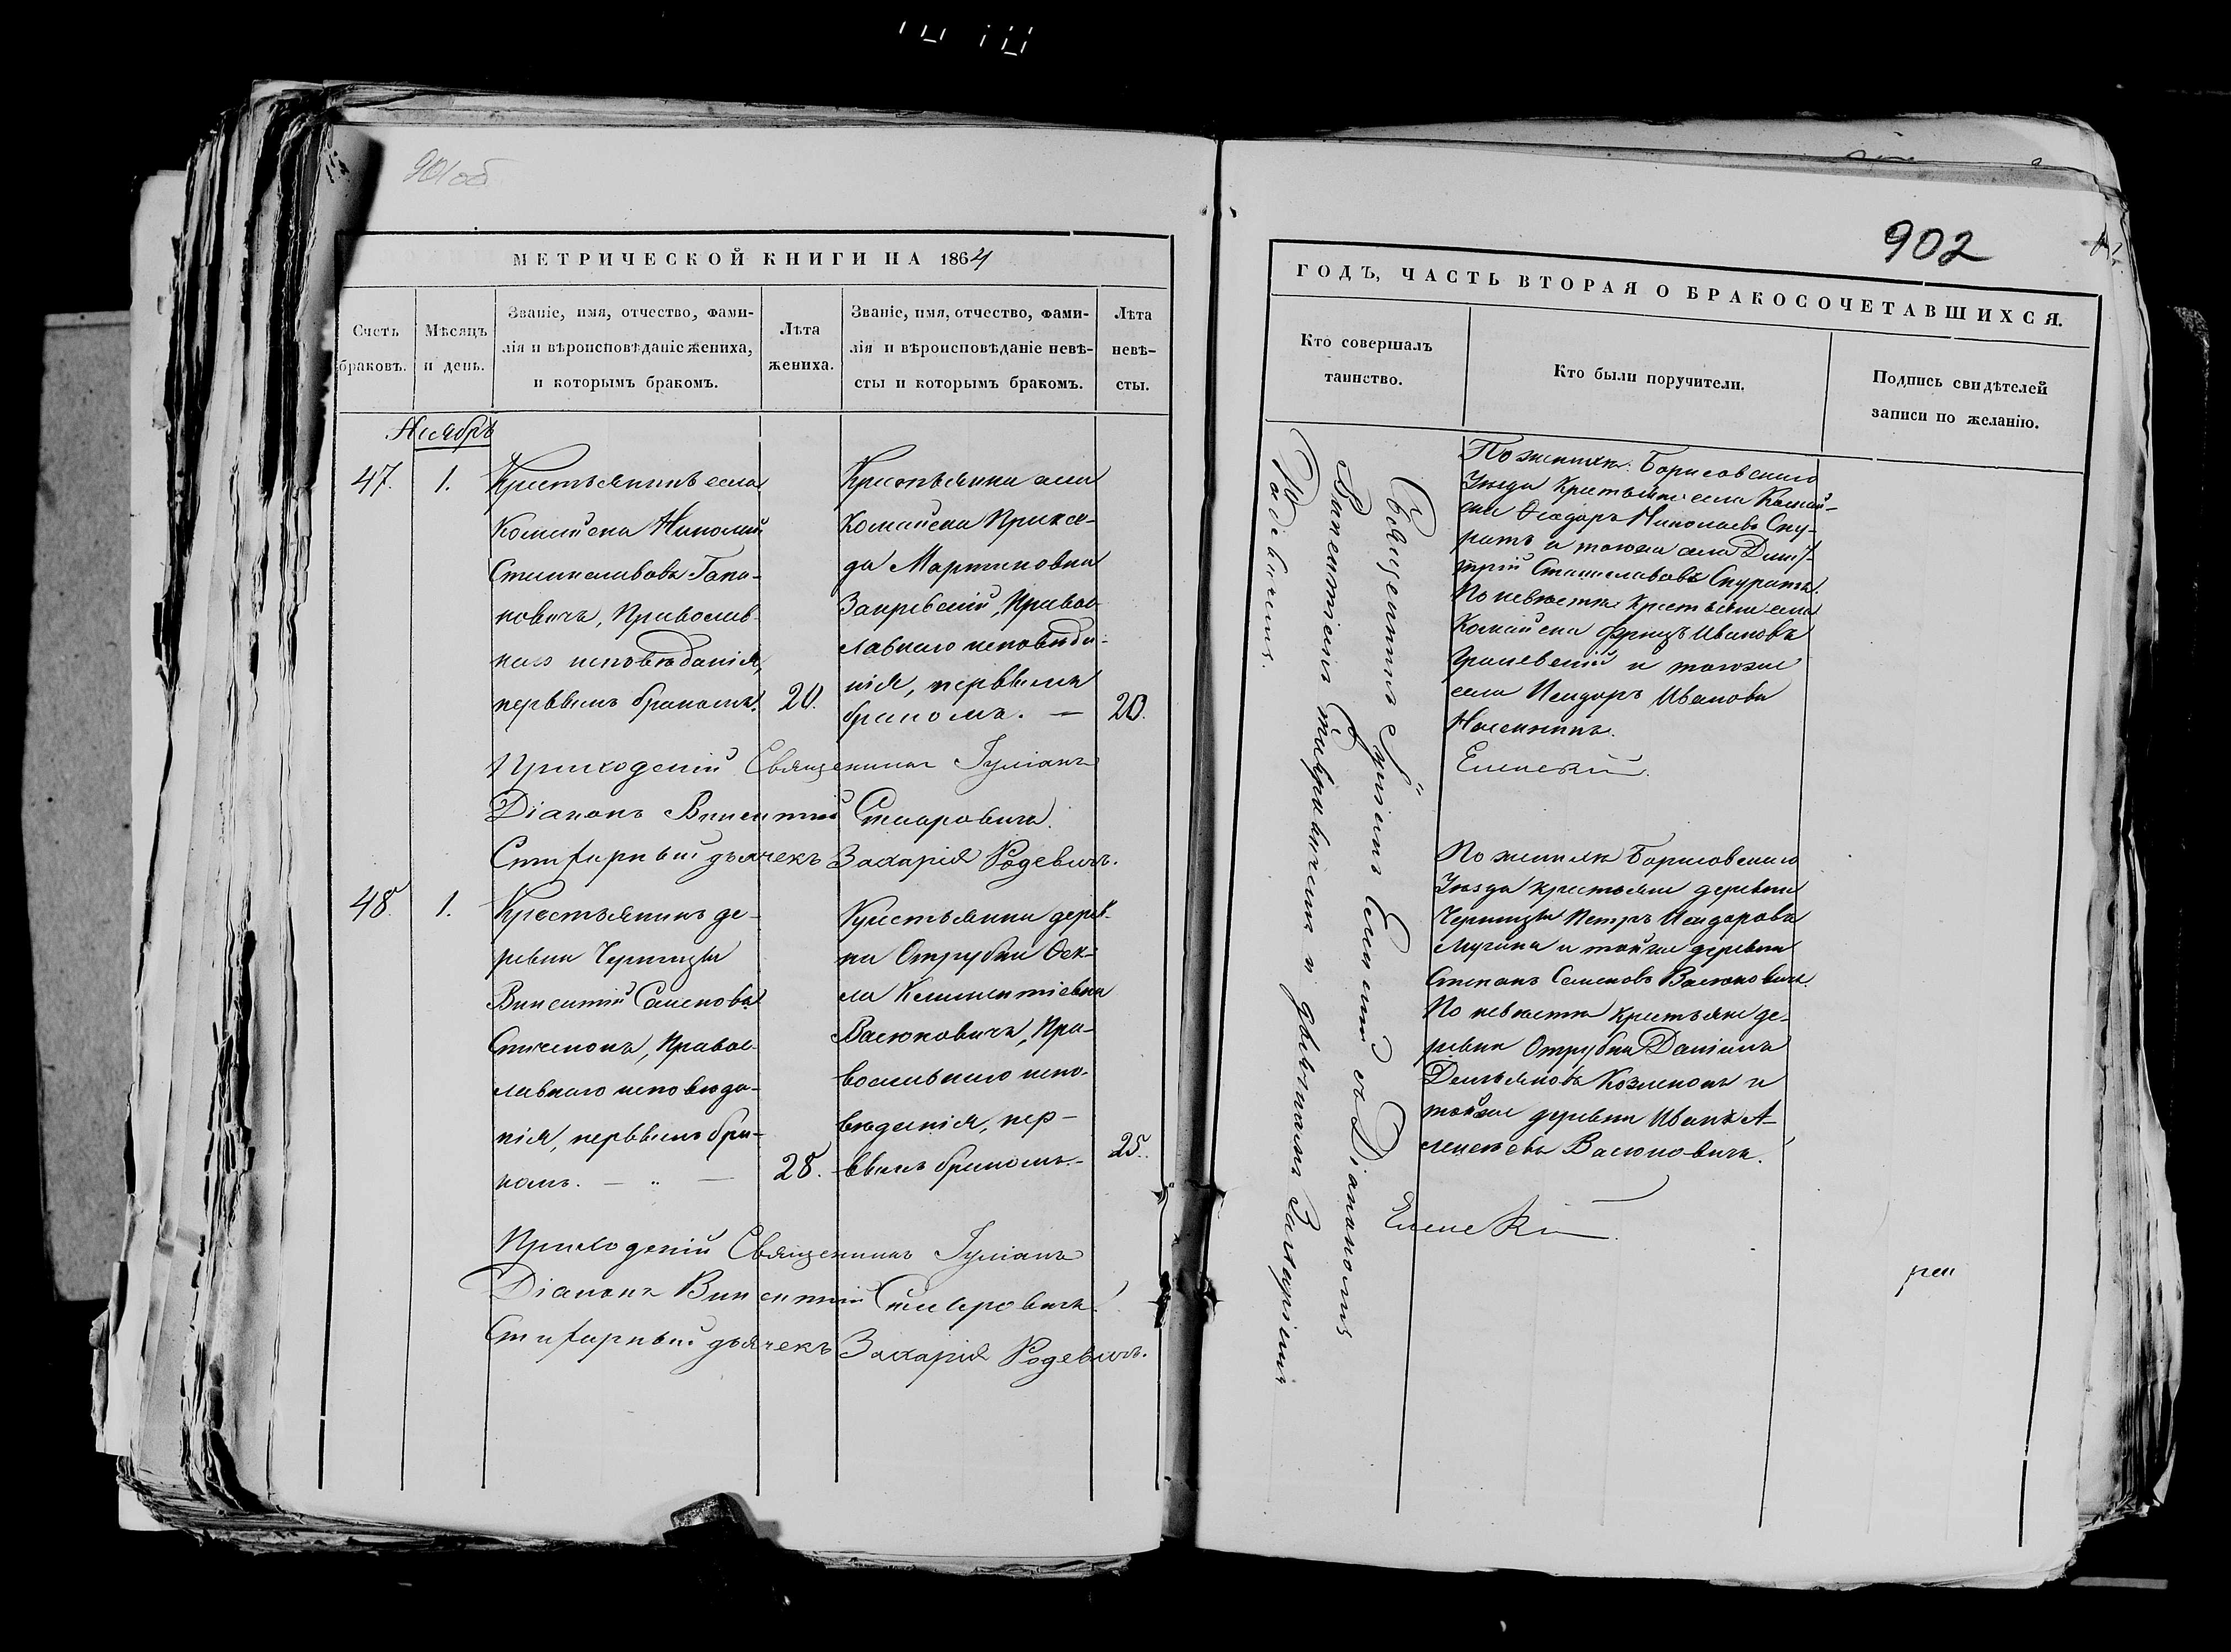 901об
МЕТРИЧЕСКОЙ КНИГИ НА 1864
Счетъ браковъ.
Мѣсяцъ и день.
Званіе, имя, отчество, фами-
лія и вѣроисповѣданіе жениха,
и которымъ бракомъ.
Лѣта
жениха.
Званіе, имя, отчество, фами-
лія и вѣроисповѣданіе невѣ-
сты и которымъ бракомъ.
Лѣта
невѣ-
сты.
Ноябрь
47.
1.
Крестьянинъ села
Николай
Станиславовъ Гапа-
новичъ, Православ-
наго исповѣданія,
первымъ бракомъ.
20.
Крестьянка села
да Мартиновна
Закревскій, Правос-
лавнаго исповѣда-
нія, первымъ
бракомъ. —
20.
Приходскій Священникъ Іуліанъ
Діаконъ Викентій
Стихарный дьячекъ Захарія Родевичъ.
48.
1.
Крестьянинъ де-
ревни Черницы
Викентій Семеновъ
Правос-
лавнаго исповѣда-
нія, первымъ бра-
комъ. — " —
28.
Крестьянка дерев-
ни Отрубки Фек-
ла Климентіевна
Васюковичъ, Пра-
вославнаго испо-
вѣданія, пер-
вымъ бракомъ. -
25.
Приходскій Священникъ Іуліанъ
Діаконъ Викентій
Стихарный дьячекъ Захарія Родевичъ.
902
ГОДЪ, ЧАСТЬ ВТОРАЯ О БРАКОСОЧЕТАВШИХСЯ.
Кто совершалъ
таинство.
Кто были поручители.
Подпись свидѣтелей
записи по желанію.
Священникъ Іуліанъ Еленскій съ Діакономъ
Викентіемъ и дьячкомъ Захаріемъ
Родевичемъ.
По женихѣ: Борисовскаго
Уѣзда Крестьяне села
Ѳеодоръ Николаевъ Ску-
ратъ и тогоже села Дими-
трій Станиславовъ Скуратъ.
По невѣстѣ Крестьяне села
Францъ Ивановъ
и тогоже
села Исидоръ Ивановъ
Еленскій.
По женихѣ Борисовскаго
Уѣзда крестьяне деревни
Черницы Петръ Исидоровъ
и тойже деревни
Степанъ Семеновъ Васюковичъ.
По невѣстѣ крестьяне де-
ревни Отрубки Даніилъ
Демьяновъ и
тойже деревни Иванъ А-
лексѣевъ Васюковичъ.
Еленскій